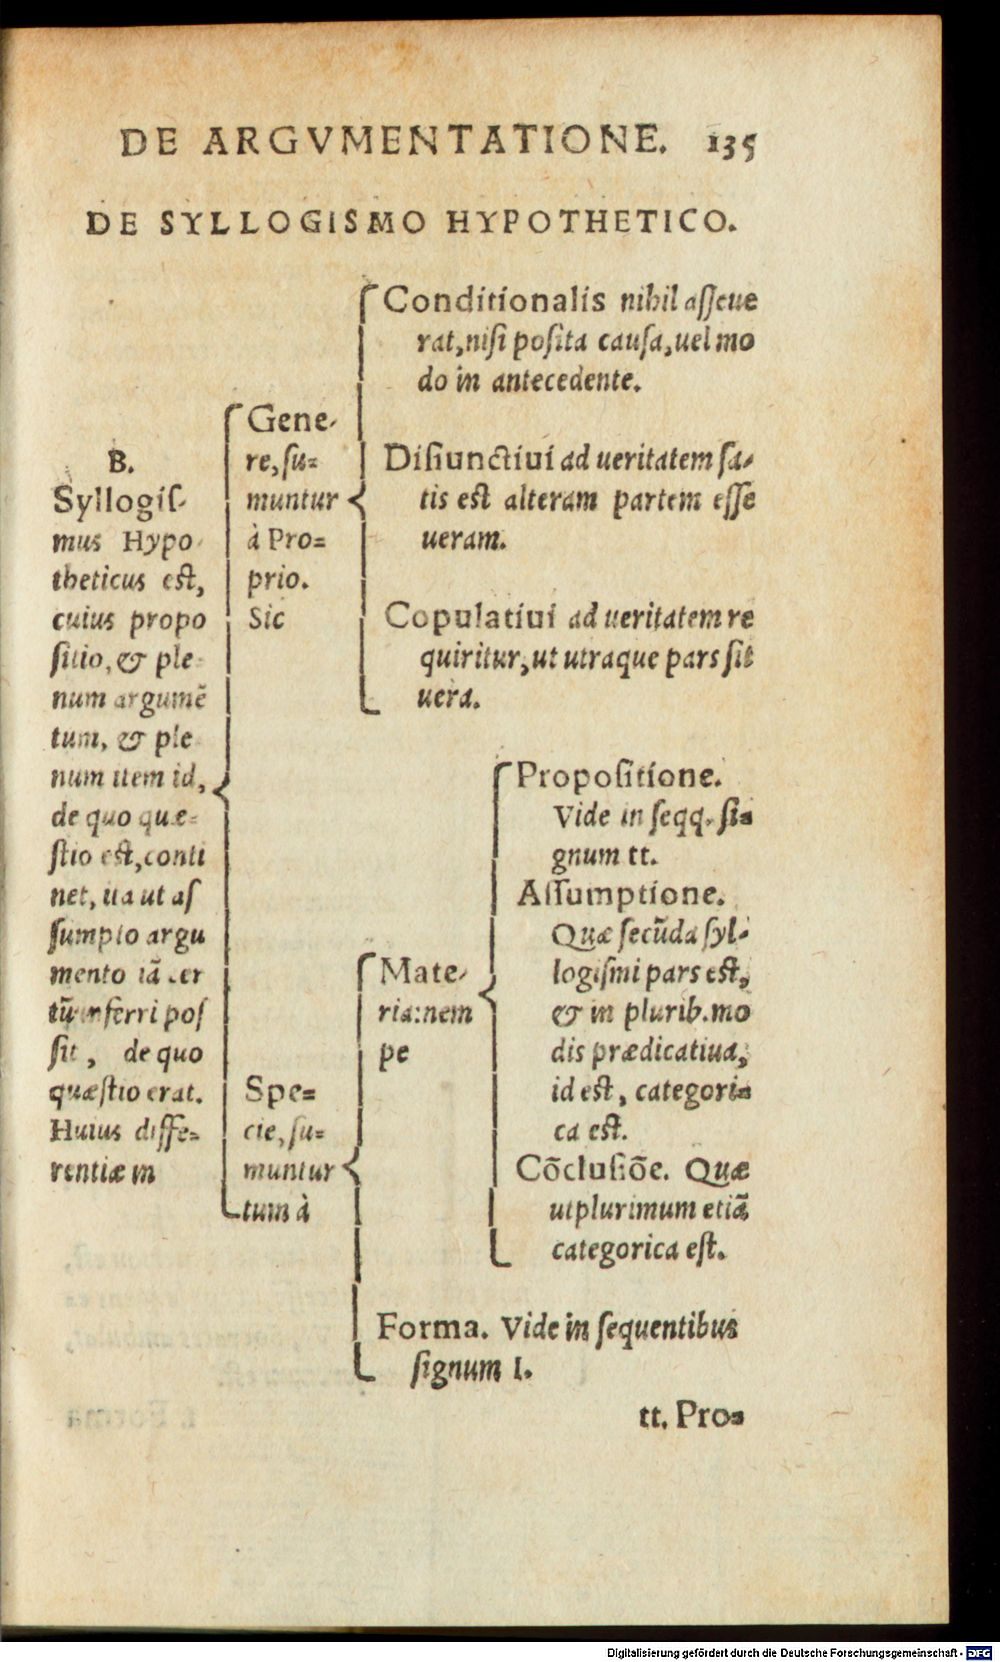 DE ARGVMENTATIONE. 135
DE SYLLOGISMO HYPOTHETICO.
B.
Syllogiſ-
mus Hypo
theticus est,
cuius propo
ſitio, & ple
num argumē
tum, & ple
num item id,
de quo quæ-
ſtio est, conti
net, ita ut aſ
ſumpto argu
mento iā cer
tū inferri poſ
ſit, de quo
quæſtio erat.
Huius diffe-
rentiæ in
Gene-
re, ſu-
muntur
à Pro-
prio.
Sic
Conditionalis nihil aſſeue
rat, niſi poſita cauſa, uel mo
do in antecedente.
Diſiunctiui ad ueritatem ſa-
tis est alteram partem eſſe
ueram.
Copulatiui ad ueritatem re
quiritur, ut utraque pars ſit
uera.
Spe-
cie, ſu-
muntur
tum à
Mate-
ria: nem
pe
Propoſitione.
Vide in ſeqq. ſi-
gnum tt.
Aſſumptione.
Quæ ſecūda ſyl-
logiſmi pars est,
& in plurib. mo
dis prædicatiua,
id est, categori-
ca est.
Cōcluſiōe. Quæ
utplurimum etiā
categorica eſt.
Forma. Vide in ſequentibus
ſignum I.
tt. Pro-
Digitalisierung gefördert durch die Deutsche Forschungsgemeinschaft - DFG